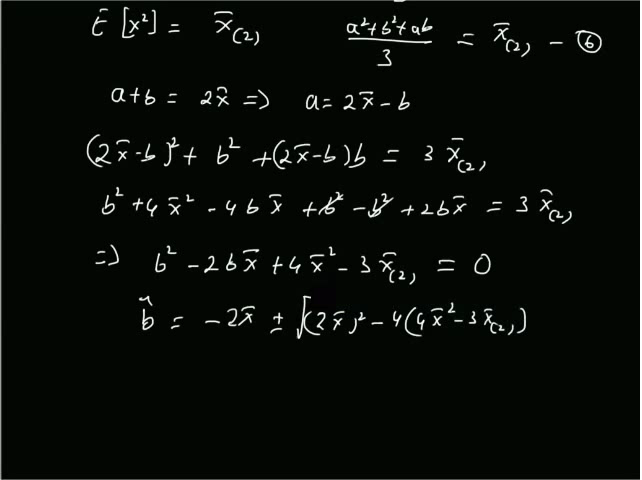 E[x²] = x̄₍₂₎   (a²+b²+ab)/3 = x̄₍₂₎ – ⑥
a+b = 2x̄ => a = 2x̄ – b
(2x̄-b)² + b² + (2x̄-b)b = 3 x̄₍₂₎
b² + 4x̄² - 4bx̄ + b² - b² + 2bx̄ = 3 x̄₍₂₎
=> b² - 2bx̄ + 4x̄² - 3x̄₍₂₎ = 0
b̂ = -2x̄ ± √(2x̄)² - 4(4x̄² - 3x̄₍₂₎)